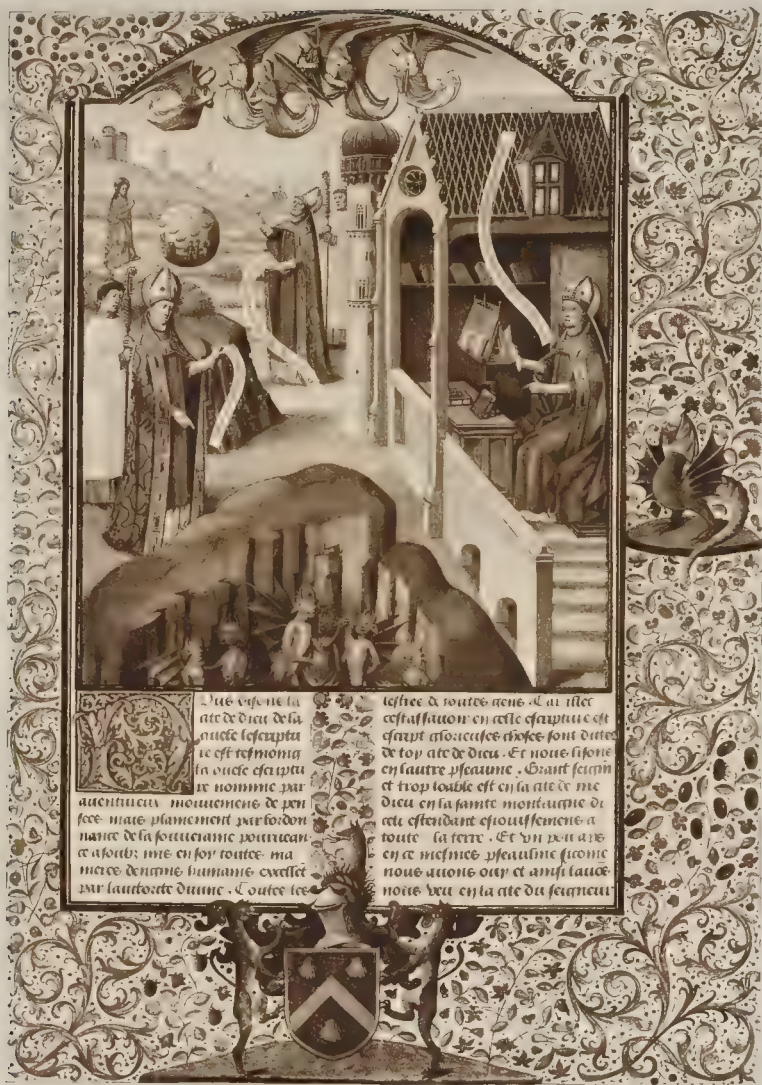 Ous disons la
cite de dieu de la
quele lescriptu
re est tesmoing
la quele escriptu
re nomme par
auentureux mouuemens de pen
sees mais plainement par lordon
nance de la souueraine pouruean
ce a soubz mis en soy toutes ma
nieres dengins humains
par lauctorite diuine . Toutes les
lestree de toutes gens . Car illec
cestassauoir en celle escripture est
escript glorieuses choses sont dittes
de toy cite de dieu . Et nous lisons
en lautre pseaume . Grant seigneur
et trop loable est en la cite de
dieu en la sainte montaigne di
celi estendant esiouissemens a
toute la terre . Et vn pou apres
en ce mesmes pseaulme sicome
nous auons ouy et ainsi lauons
nous veu en la cite du seigneur